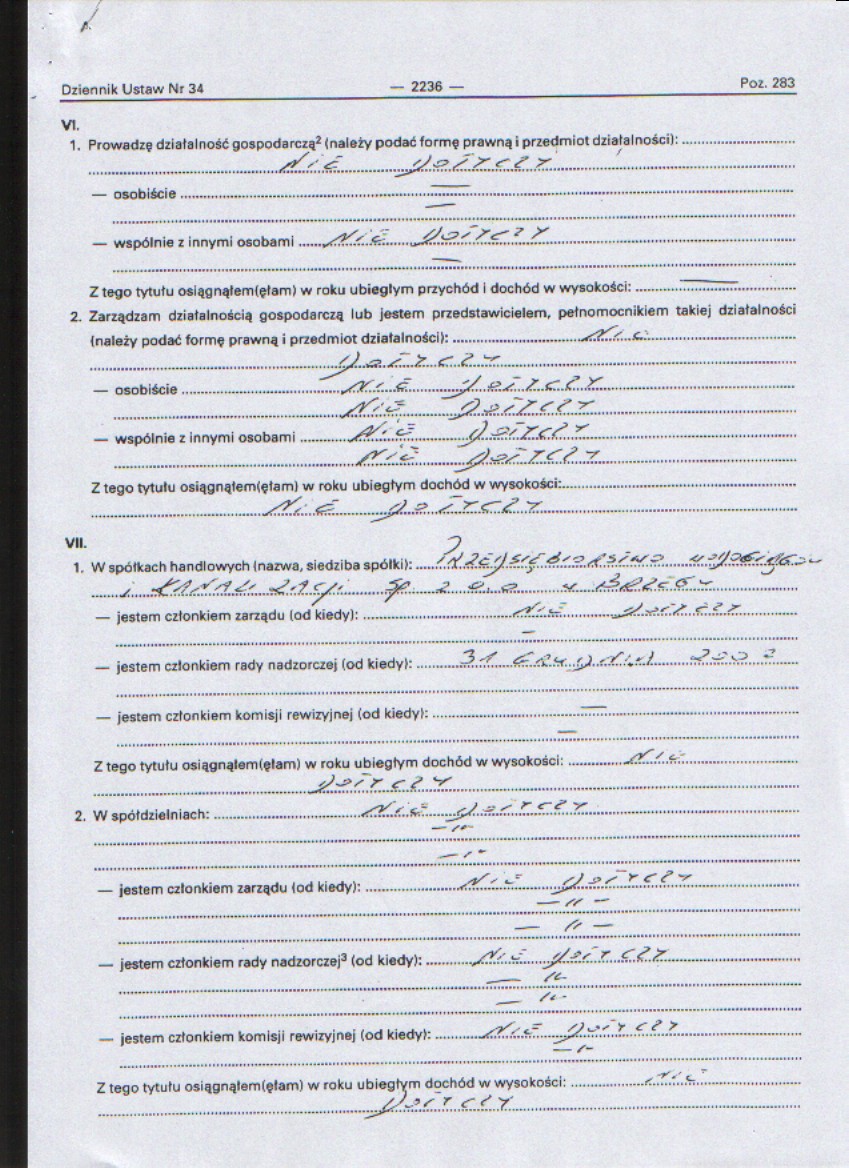 Dziennik Ustaw Nr 34 — 2236 — Poz. 283
VI.
1. Prowadzę działalność gospodarczą² (należy podać formę prawną i przedmiot działalności):
NIE DOTYCZY
— osobiście —
—
— wspólnie z innymi osobami NIE DOTYCZY
—
Z tego tytułu osiągnąłem(ęłam) w roku ubiegłym przychód i dochód w wysokości: —
2. Zarządzam działalnością gospodarczą lub jestem przedstawicielem, pełnomocnikiem takiej działalności
(należy podać formę prawną i przedmiot działalności): NIE
DOTYCZY
— osobiście NIE DOTYCZY
NIE DOTYCZY
— wspólnie z innymi osobami NIE DOTYCZY
NIE DOTYCZY
Z tego tytułu osiągnąłem(ęłam) w roku ubiegłym dochód w wysokości:
NIE DOTYCZY
VII.
1. W spółkach handlowych (nazwa, siedziba spółki): PRZEDSIĘBIORSTWO WODOCIĄGÓW
i KANALIZACJI Sp z o.o w BRZEGU
— jestem członkiem zarządu (od kiedy): NIE DOTYCZY
—
— jestem członkiem rady nadzorczej (od kiedy): 31 GRUDNIA 2002
— jestem członkiem komisji rewizyjnej (od kiedy): —
—
Z tego tytułu osiągnąłem(ęłam) w roku ubiegłym dochód w wysokości: NIE
DOTYCZY
2. W spółdzielniach: NIE DOTYCZY
—"—
—"—
— jestem członkiem zarządu (od kiedy): NIE DOTYCZY
—"—
—"—
— jestem członkiem rady nadzorczej³ (od kiedy): NIE DOTYCZY
—"—
—"—
— jestem członkiem komisji rewizyjnej (od kiedy): NIE DOTYCZY
—"—
Z tego tytułu osiągnąłem(ęłam) w roku ubiegłym dochód w wysokości: NIE
DOTYCZY